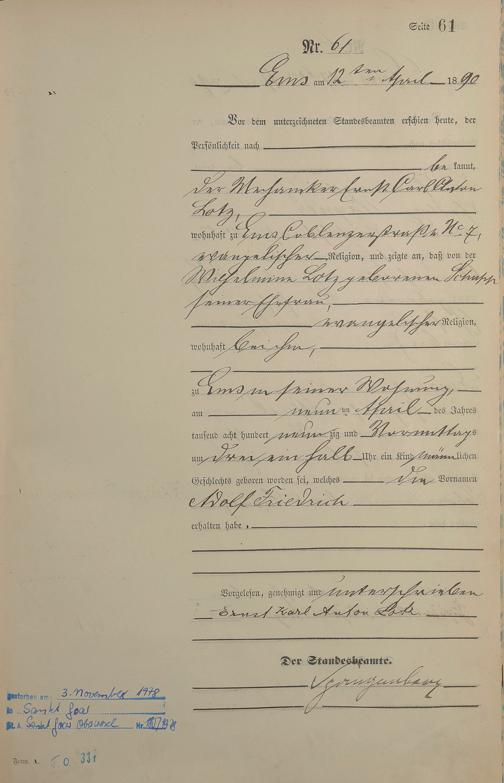 Seite 61
Nr. 61
Ems am 12 ten April 1890
Vor dem unterzeichneten Standesbeamten erschien heute, der
Persönlichkeit nach
be kannt,
der Mechaniker Ernst Carl Anton
Lotz,
wohnhaft zu Ems Coblenzerstraße No 7,
evangelischer Religion, und zeigte an, daß von der
Wilhelmine Lotz geborenen
seiner Ehefrau,
evangelischer Religion,
wohnhaft bei ihm,
zu Ems in seiner Wohnung,
am neun ten April des Jahres
tausend acht hundert neunzig und Vormittags
um drei ein halb Uhr ein Kind männlichen
Geschlechts geboren worden sei, welches die Vornamen
Adolf Friedrich
erhalten habe.
Vorgelesen, genehmigt und unterschrieben
Ernst Karl Anton Lotz
Der Standesbeamte.
Spangenberg
Gestorben am: 3. November 1978
in Sankt Goar
St. A. Sankt Goar Oberwesel Nr.
Form. A.